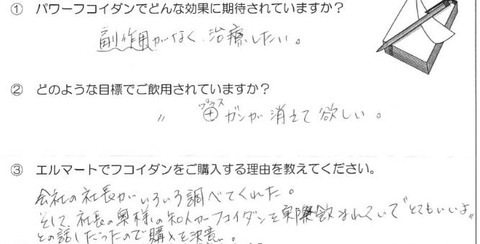 ① パワーフコイダンでどんな効果に期待されていますか？
副作用がなく、治療したい。
② どのような目標でご飲用されていますか？
〃 ⊕プラス ガンが消えて欲しい。
③ エルマートでフコイダンをご購入する理由を教えてください。
会社の社長がいろいろ調べてくれた。
そして、社長の奥様の知人がフコイダンを実際飲まれていて“とてもいいよ”
との話しだったので購入を決意。